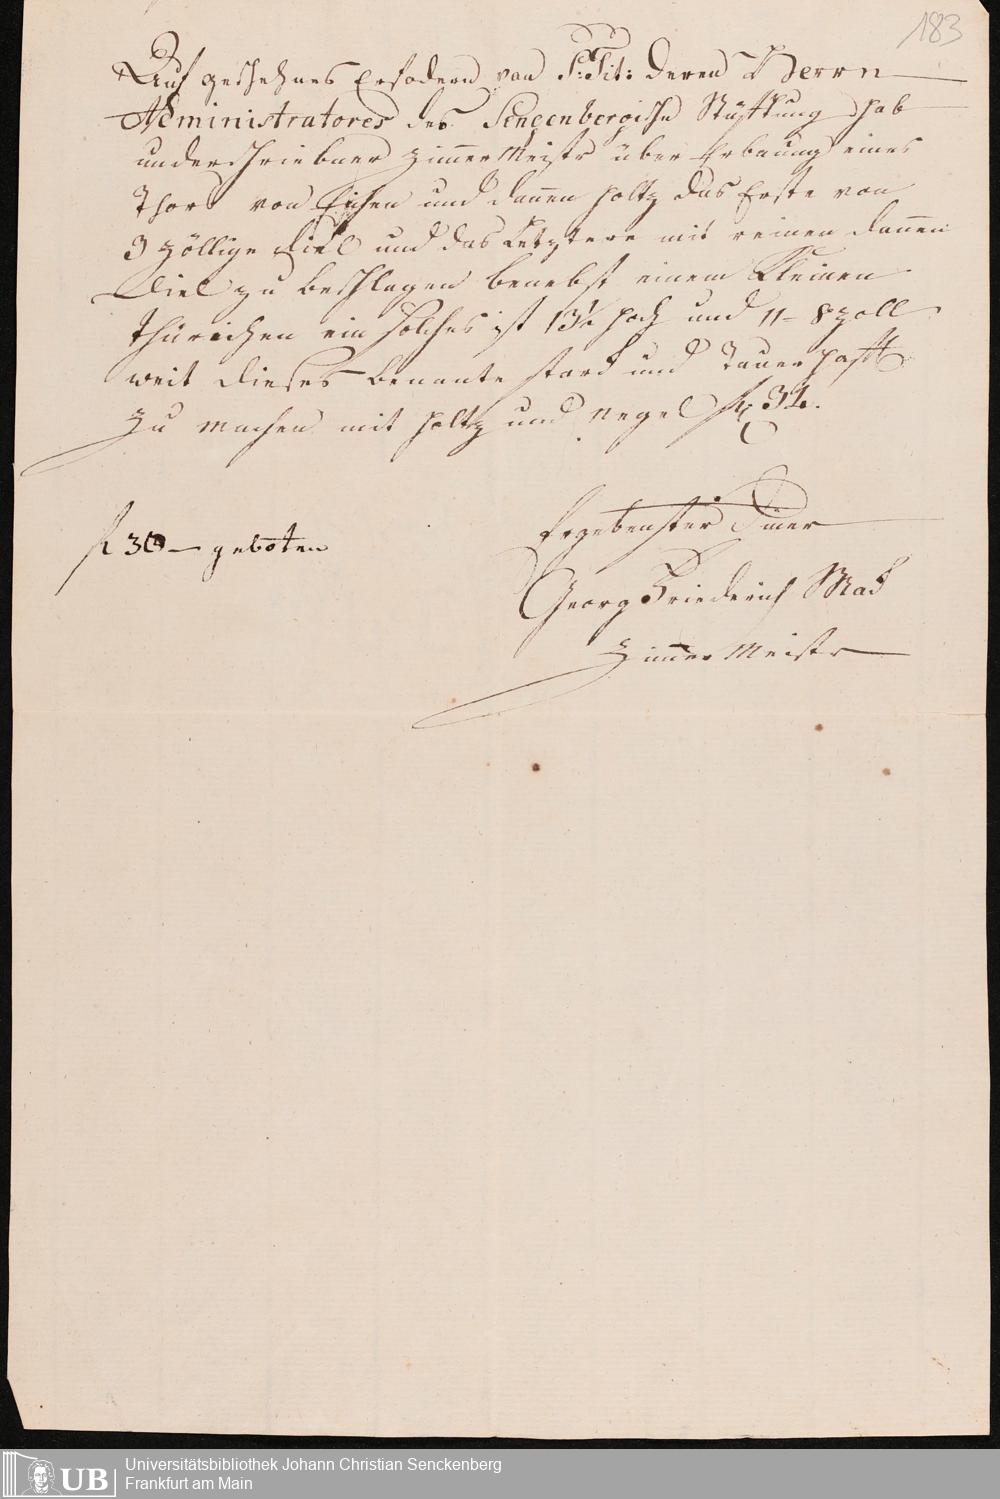 183
Auf geschehnes Erfodern von P: Tit: deren Herrn
Administratores des Sengenbergische Stüfftung hab
underschriebner Zimmer Meistr über Erbauung eines
Thors von Eichen und dannen holtz das Erste von
3 zöllige Diel und das Letztere mit reinen dannen
Diel zu beschlagen benebst einem Kleinen
Thürichen ein solches ist 13½ hoch und 11 - 8 zoll
weit dieses benante starck und Tauerhafft
zu machen mit holtz und negel f 32.
f 30 — geboten
Ergebenster Diner
Georg Friederich Mack
Zimmer Meistr
UB
Universitätsbibliothek Johann Christian Senckenberg
Frankfurt am Main